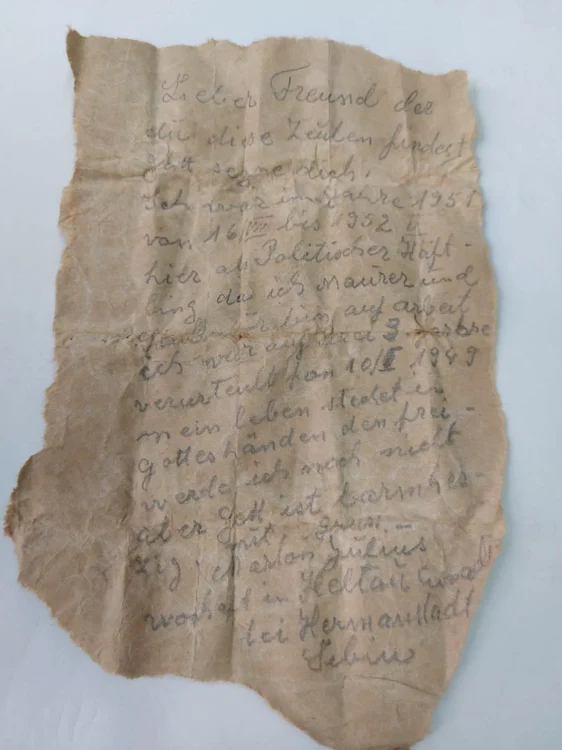 Lieber Freund der
du dise Zeulen findest
Gott segne dich.
Ich war im Jahre 1951
von 16/VIII bis 1952
hier als Politischer Häft-
ling da ich Maurer und
bin auf arbeit
ich war auf 3
verurteilt fon 10/II 1949
mein leben stedet in
Gottes händen den frei-
werde ich noch nicht
aber Gott ist barmher-
zig, mit grus
Julius
wohaft in Heltau
bei Hermanstadt
Sibiu